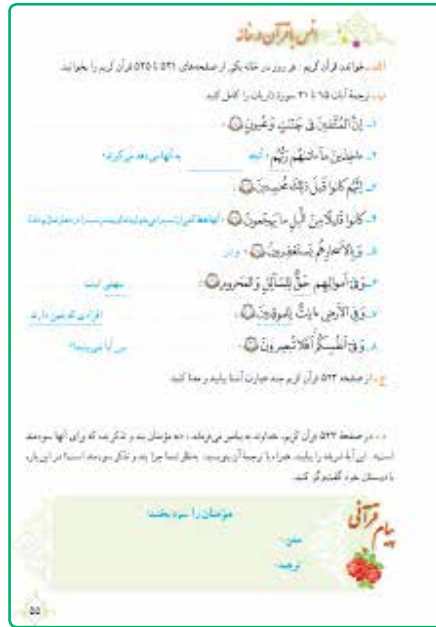 انس با قرآن در خانه
الف ـ خواندن قرآن کریم : هر روز در خانه یکی از صفحه‌های ۵۲۱ تا ۵۲۵ قرآن کریم را بخوانید.
ب ـ ترجمهٔ آیات ۱۵ تا ۲۱ سورهٔ ذاریات را کامل کنید.
۱ـ اِنَّ الْمُتَّقینَ فی جَنّاتٍ وَ عُیونٍ
۲ـ ءاخِذینَ ما ءاتاهُم رَبُّهُم ؛ آنچه به آنها می‌دهد می‌گیرند؛
۳ـ اِنَّهُم کانوا قَبلَ ذٰلِکَ مُحسِنینَ
۴ـ کانوا قَلیلًا مِنَ الَّیلِ ما یَهجَعونَ
۵ـ وَ بِالاَسحارِ هُم یَستَغفِرونَ ؛ و در
۶ـ وَ فی اَموالِهِم حَقٌّ لِلسّائِلِ وَ المَحرومِ سهمی است
۷ـ وَ فِی الاَرضِ ءایاتٌ لِلموقِنینَ افرادی که یقین دارند.
۸ـ وَ فی اَنفُسِکُم اَفَلا تُبصِرونَ پس آیا نمی‌بینید؟
ج ـ از صفحه ۵۲۳ قرآن کریم چند عبارت آشنا بیابید و معنا کنید.
د ـ در صفحهٔ ۵۲۳ قرآن کریم، خداوند به پیامبر می‌فرماید : «به مؤمنان پند و تذکر بده که برای آنها سودمند
است». این آیهٔ شریفه را بیابید. همراه با ترجمهٔ آن بنویسید. به‌نظر شما چرا پند و تذکر سودمند است؟ در این باره
با دوستان خود گفت‌وگو کنید.
پیام قرآنی
مؤمنان را سود بخشد؛
متن:
ترجمه:
۵۵